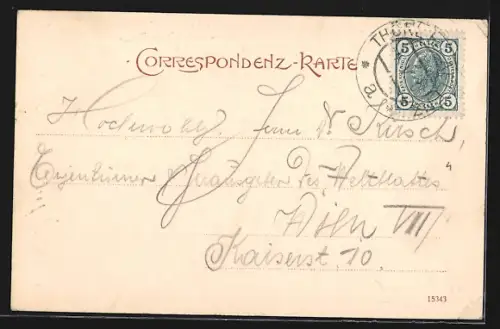 CORRESPONDENZ-KARTE
THÖRL
5 5
5 5
Hochwohlg. Herrn Dr. Kirsch,
Eigentümer Herausgeber des Weltblattes
Wien VIII
Kaiserst. 10.
15343